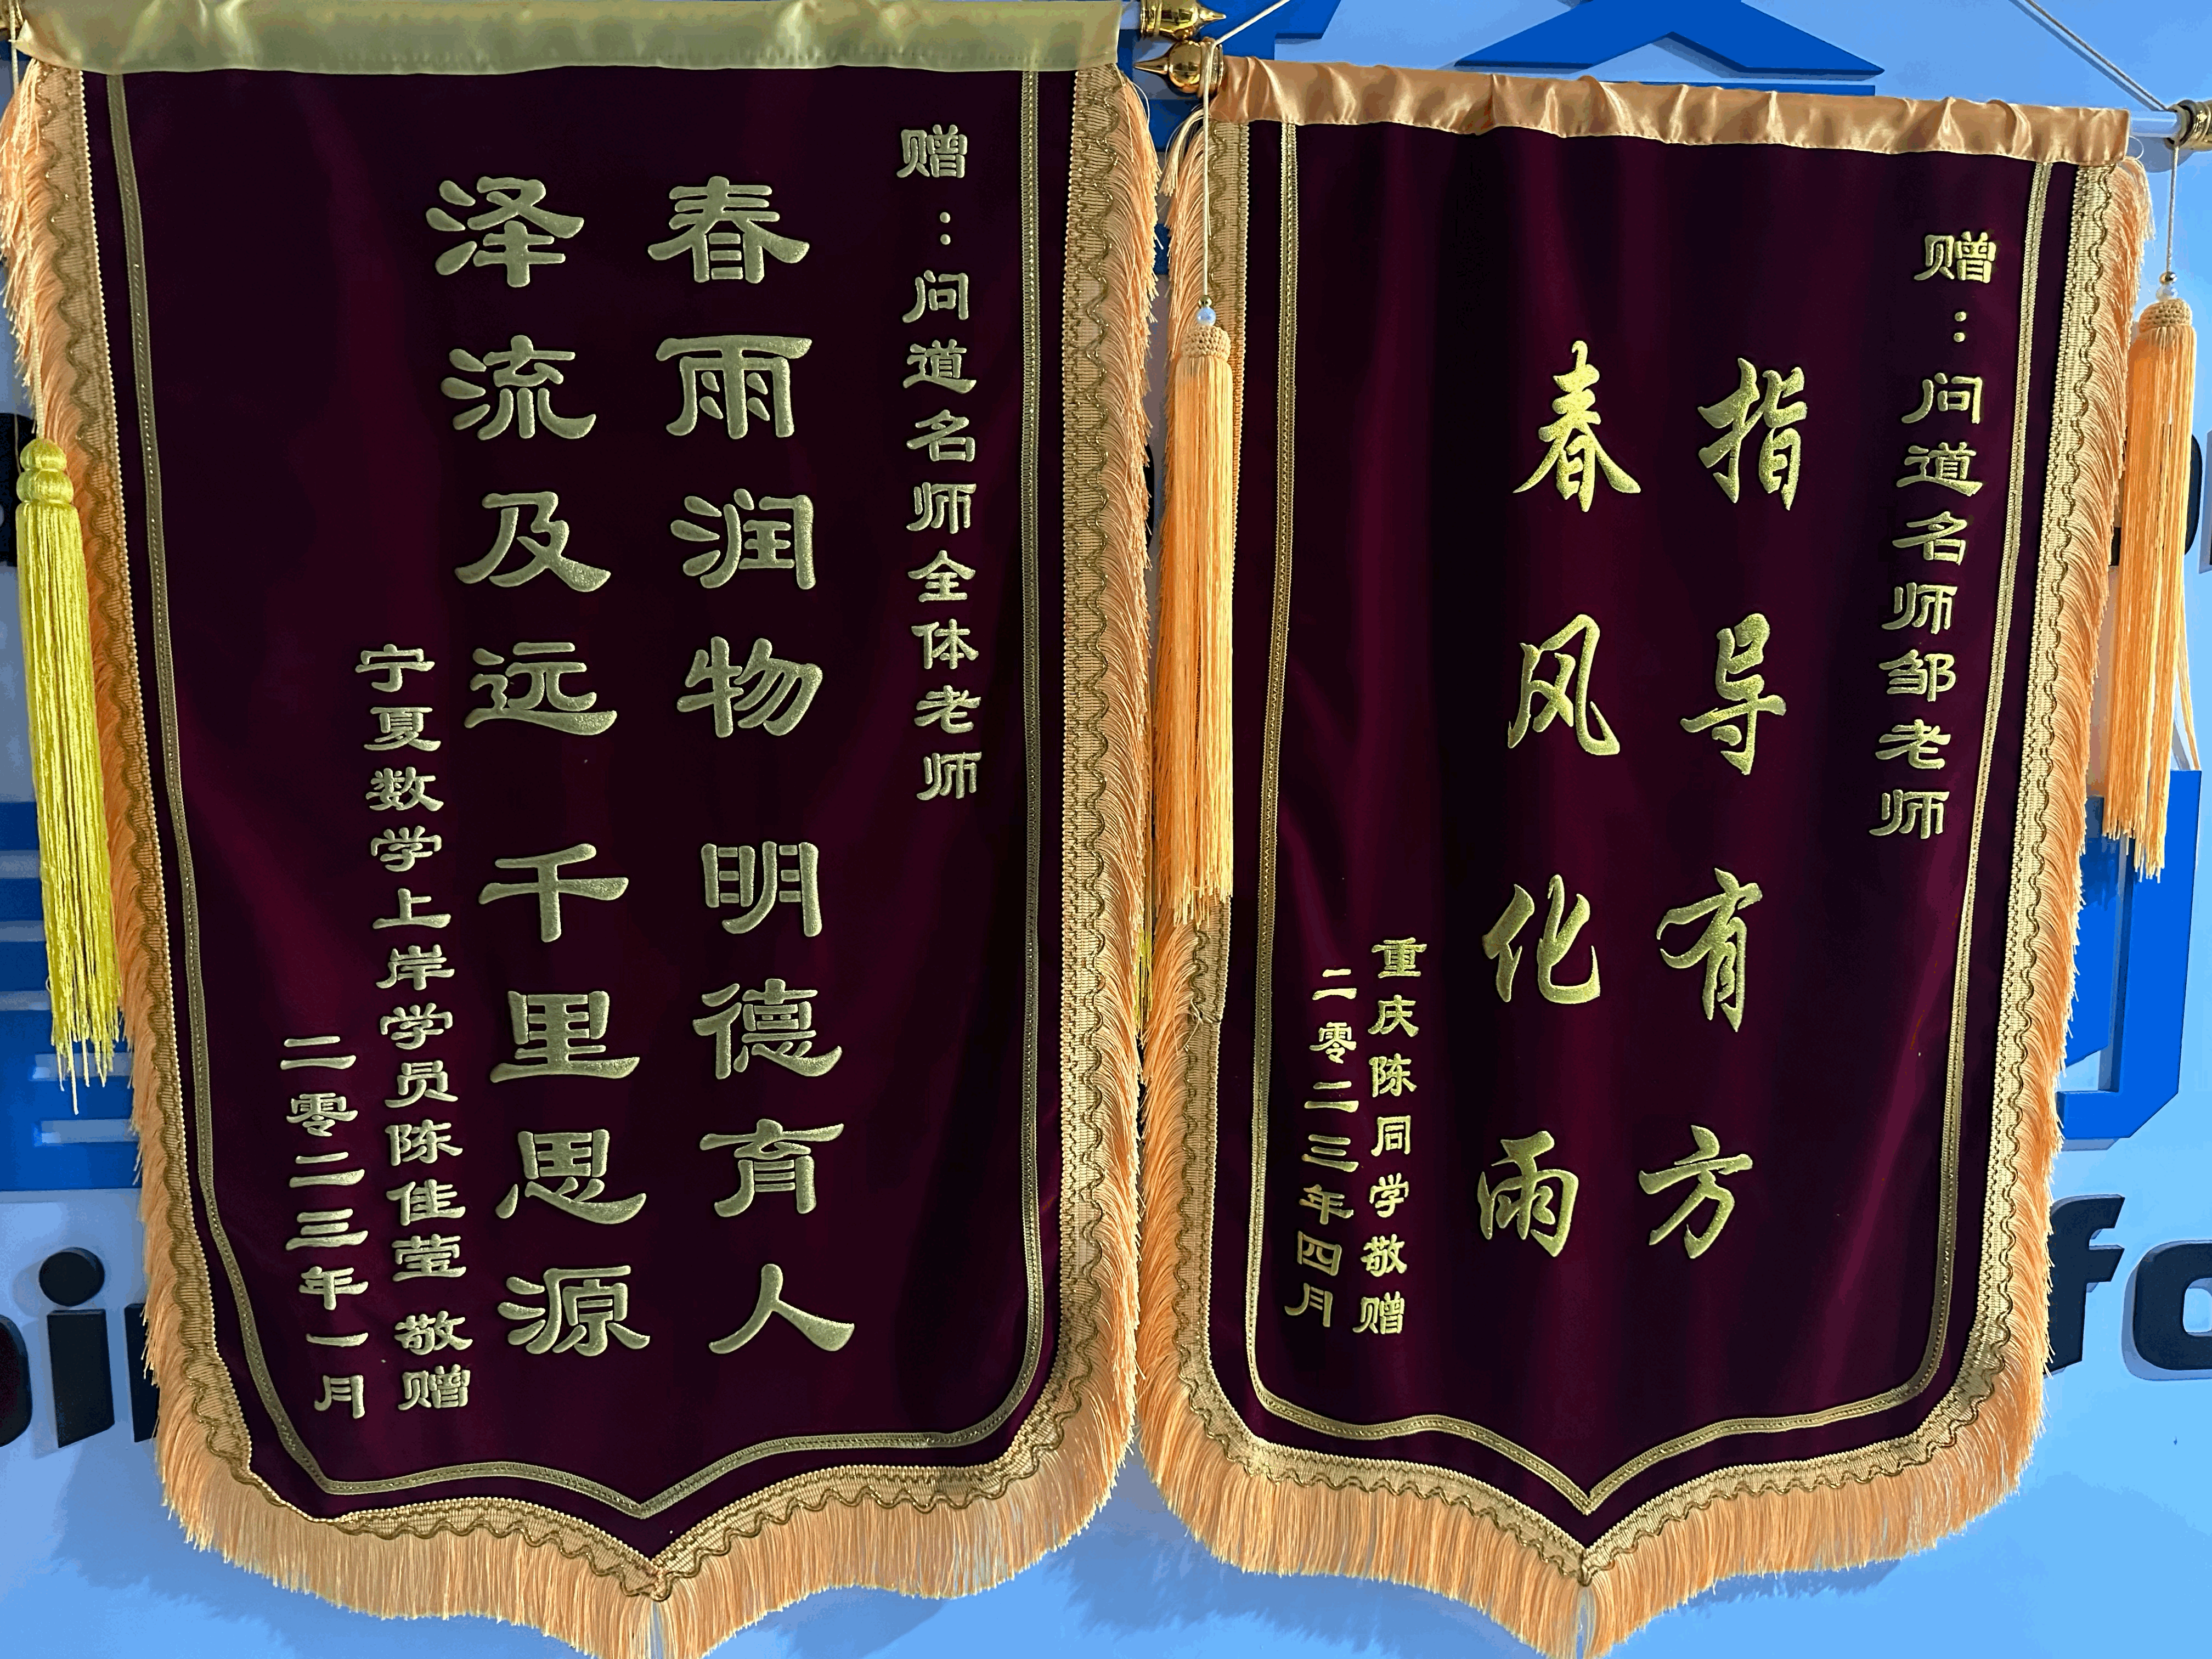 赠：问道名师全体老师
春雨润物 明德育人
泽流及远 千里思源
宁夏数学上岸学员陈佳莹 敬赠
二零二三年一月
赠：问道名师邹老师
指导有方
春风化雨
重庆陈同学敬赠
二零二三年四月